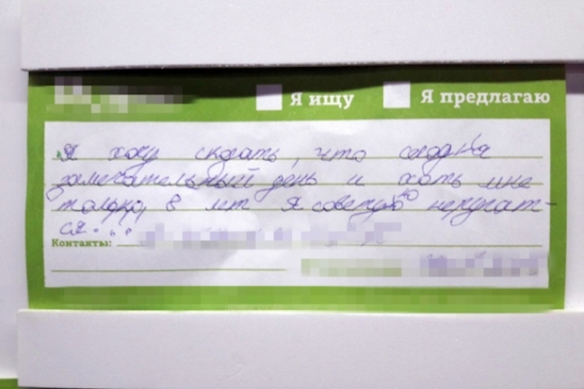 Я ищу Я предлагаю
Я хочу сказать, что сегодня
замечательный день и хоть мне
только 8 лет я советую неругат-
ся...
Контакты: